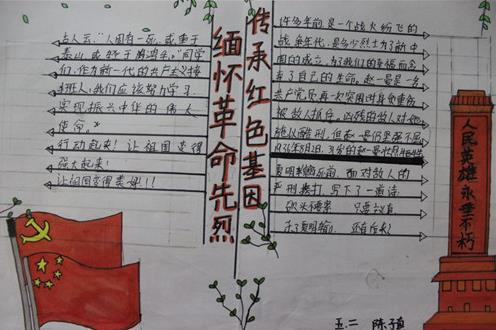 传承红色基因
缅怀革命先烈
古人云:"人固有一死,或重于
泰山,或轻于鸿毛。"同学
们,作为新一代的共产主义接
班人,我们应该努力学习
实现振兴中华的伟大
使命。"
行动起来!让祖国变得
强大起来!
让祖国变得美好!!!
许多年前,是一个战火纷飞的
战争年代,是多少烈士为了新中
国的成立,为了我们的幸福而失
去了自己的生命。赵一曼是一名
共产党员,再次突围时身负重伤
被敌人抓住,凶残的敌人对他
施以酷刑,但赵一曼仍坚强不屈
1936年8月2日,31岁的赵一曼壮烈牺牲
夏明翰临死前,面对敌人的
严刑拷打,写下了一首诗
砍头不要紧 只要主义真
杀了夏明翰 还有后来人
人民英雄永垂不朽
五.二 陈子